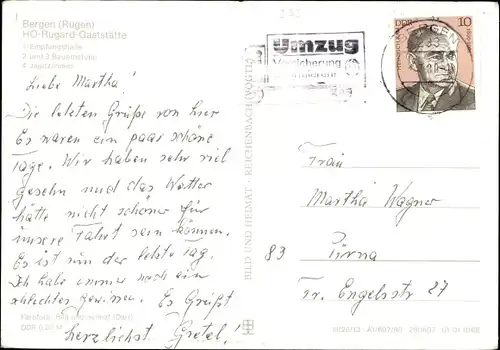 Bergen (Rügen)
HO-Rugard-Gaststätte
1 Empfangshalle
2 und 3 Bauernstube
4 Jagdzimmer
Umzug
Versicherung
DDR 10
Liebe Martha!
Die letzten Grüße von hier
Es waren ein paar schöne
Tage. Wir haben sehr viel
gesehn und das Wetter
hätte nicht schöner für
unsere Fahrt sein können.
Es ist nun der letzte Tag.
Ich habe immer noch ein
schlechtes Gewissen. Es Grüßt
herzlichst Gretel!
BILD UND HEIMAT · REICHENBACH (VOGTL)
Frau
Martha Wagner
83 Pirna
Fr. Engelsstr 27
Farbfoto: Bild und Heimat (Darr)
DDR 0,20 M